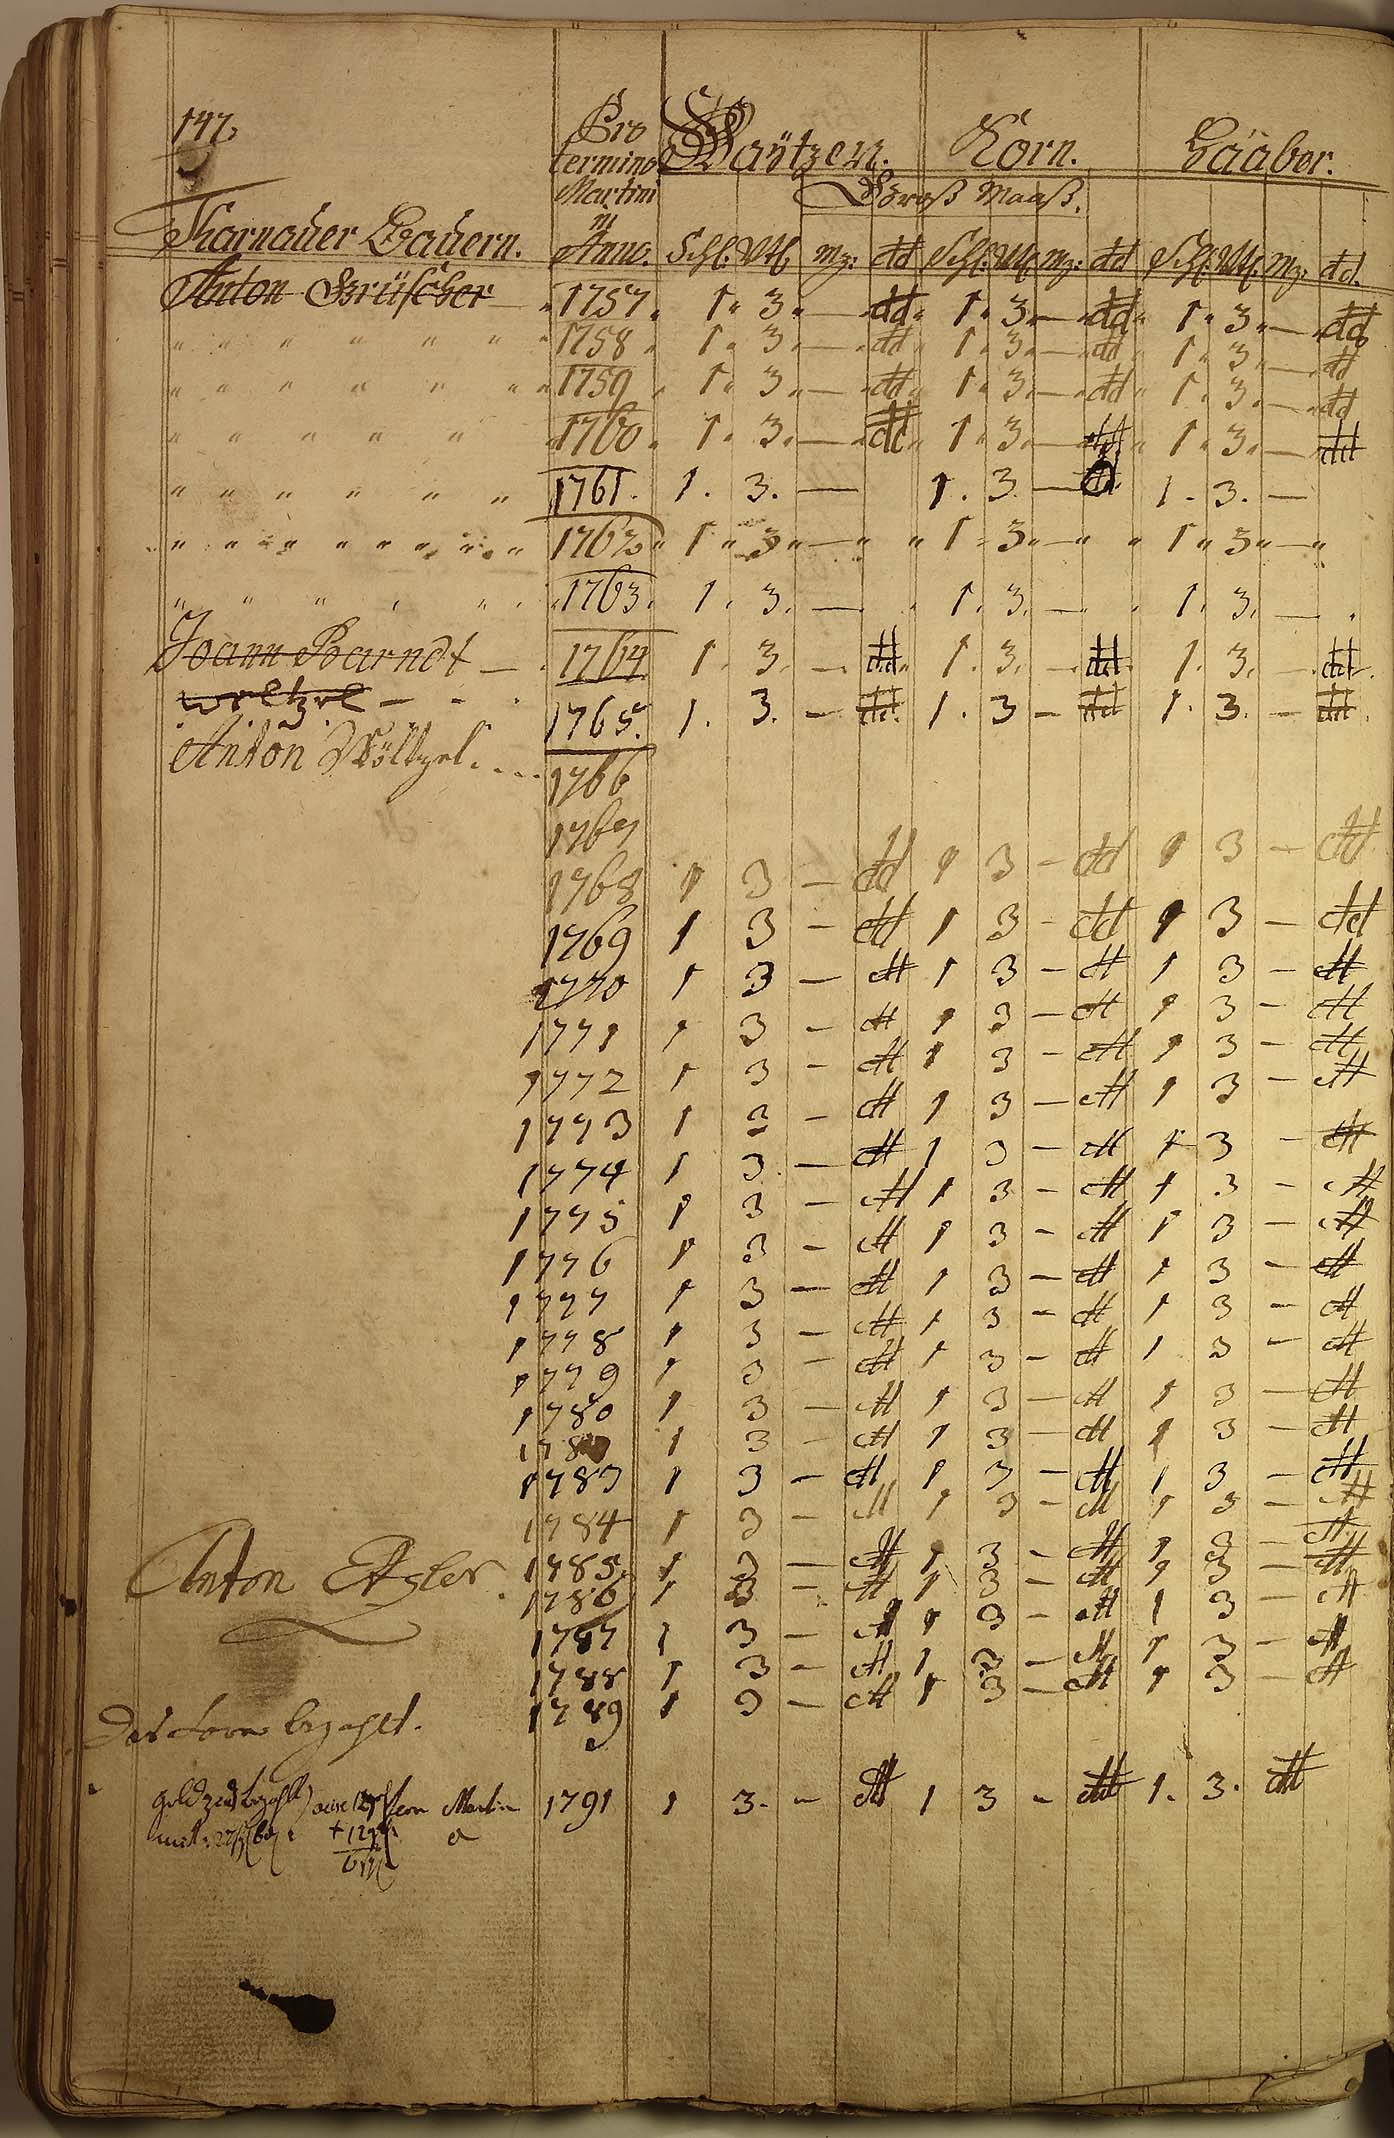 147.
Pro termino Martini in Anno. Waÿtzen. Korn. Haaber.
Groß Maaß.
Tharnauer Bauern. Schl: Vtl. Mz: dd Schl: Vtl. Mz: dd Schl: Vtl. Mz: dd.
Anton Grüscher 1757. 1. 3. — dd 1. 3. — dd 1. 3. — dd
" " " " " " 1758. 1. 3. — dd 1. 3. — dd 1. 3. — dd
" " " " " " 1759. 1. 3. — dd 1. 3. — dd 1. 3. — dd
" " " " " 1760. 1. 3. — dd 1. 3. — dd 1. 3. — dd
" " " " " " 1761. 1. 3. — 1. 3. — 1. 3. —
" " " " " " " " 1762 " 1 " 3 " — " " 1 " 3 " — " " 1 " 3 " — "
" " " " " 1763. 1. 3. — 1. 3. — 1. 3. —
Joann Barndt — 1764 1. 3. — dd. 1. 3. — dd. 1. 3. — dd.
weltzel — - - 1765. 1. 3. — dd. 1. 3 — dd 1. 3. — dd.
Anton Wöltzel. . . . 1766
1767
1768 1 3 — dd 1 3 — dd 1 3 — dd
1769 1 3 — dd 1 3 — dd 1 3 — dd
1770 1 3 — dd 1 3 — dd 1 3 — dd
1771 1 3 — dd 1 3 — dd 1 3 — dd
1772 1 3 — dd 1 3 — dd 1 3 — dd
1773 1 3 — dd 1 3 — dd 1 3 — dd
1774 1 3 — dd 1 3 — dd 1 3 — dd
1775 1 3 — dd 1 3 — dd 1 3 — dd
1776 1 3 — dd 1 3 — dd 1 3 — dd
1777 1 3 — dd 1 3 — dd 1 3 — dd
1778 1 3 — dd 1 3 — dd 1 3 — dd
1779 1 3 — dd 1 3 — dd 1 3 — dd
1780 1 3 — dd 1 3 — dd 1 3 — dd
1 3 — dd 1 3 — dd 1 3 — dd
1783 1 3 — dd 1 3 — dd 1 3 — dd
1784 1 3 — dd 1 3 — dd 1 3 — dd
Anton 1785. 1 3 — dd 1 3 — dd 1 3 — dd
1786 1 3 — dd 1 3 — dd 1 3 — dd
1787 1 3 — dd 1 3 — dd 1 3 — dd
1788 1 3 — dd 1 3 — dd 1 3 — dd
1789 1 3 — dd 1 3 — dd 1 3 — dd
bezahlt.
Martin 1791 1 3. — dd 1 3 — dd 1. 3. dd